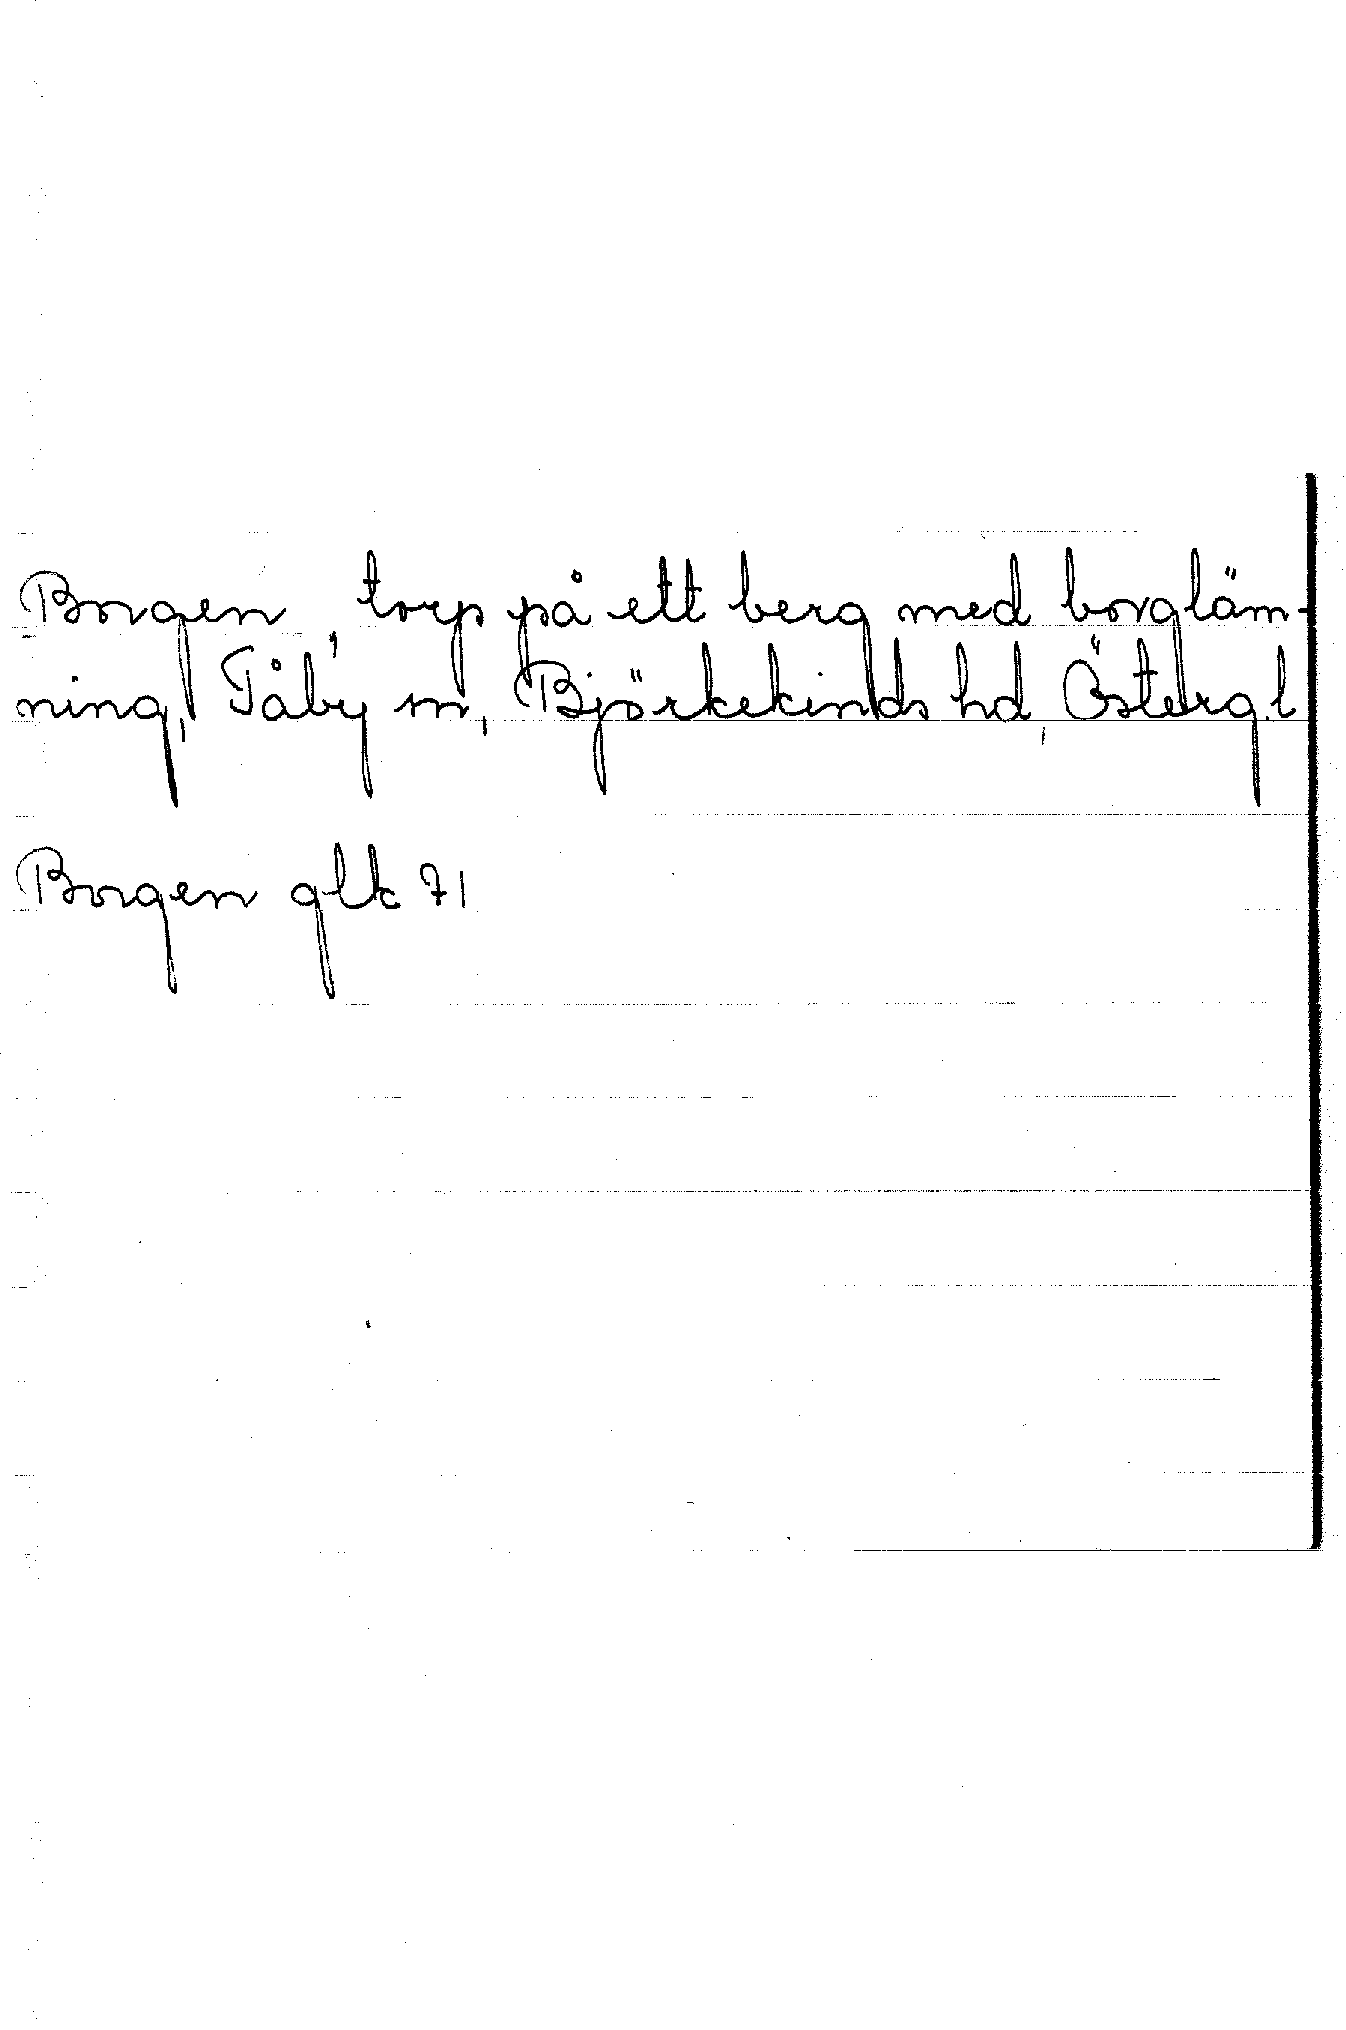 Borgen, torp på ett berg med borgläm-
ning, Tåby sn, Björkekinds hd, Östergl
Borgen glk 71